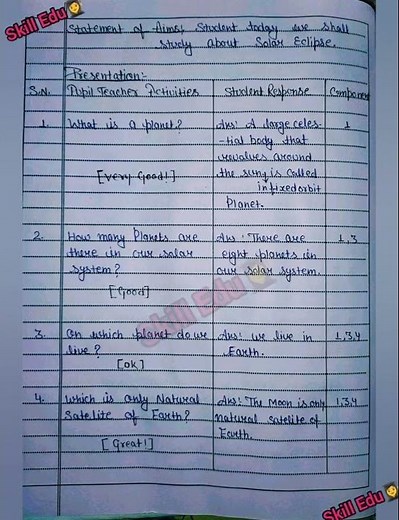 Skill Edu
Statement of Aims: Student today we shall
study about Solar Eclipse.
Presentation:-
S.N. Pupil Teacher Activities Student Response Component
1. What is a planet? Ans: A large celes- 1
-tial body that
revolves around
[Very Good!] the sun is called
in fixed orbit
Planet.
2. How many Planets are Ans: There are 1,3
there in our solar eight planets in
system? our solar system.
[Good]
Skill Edu
3. On which planet do we Ans: we live in 1,3,4
live? Earth.
[ok]
4. which is only Natural Ans: The Moon is only 1,3,4
Satelite of Earth? natural satelite of
Earth.
[Great!]
Skill Edu